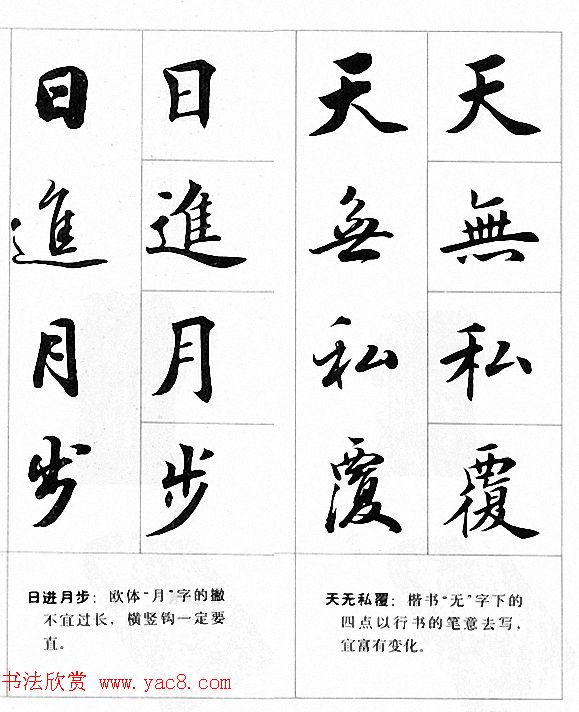 天無私覆
天無私覆
日進月步
日進月步
天无私覆：楷书“无”字下的
四点以行书的笔意去写，
宜富有变化。
日进月步：欧体“月”字的撇
不宜过长，横竖钩一定要
直。
书法欣赏 www.yac8.com